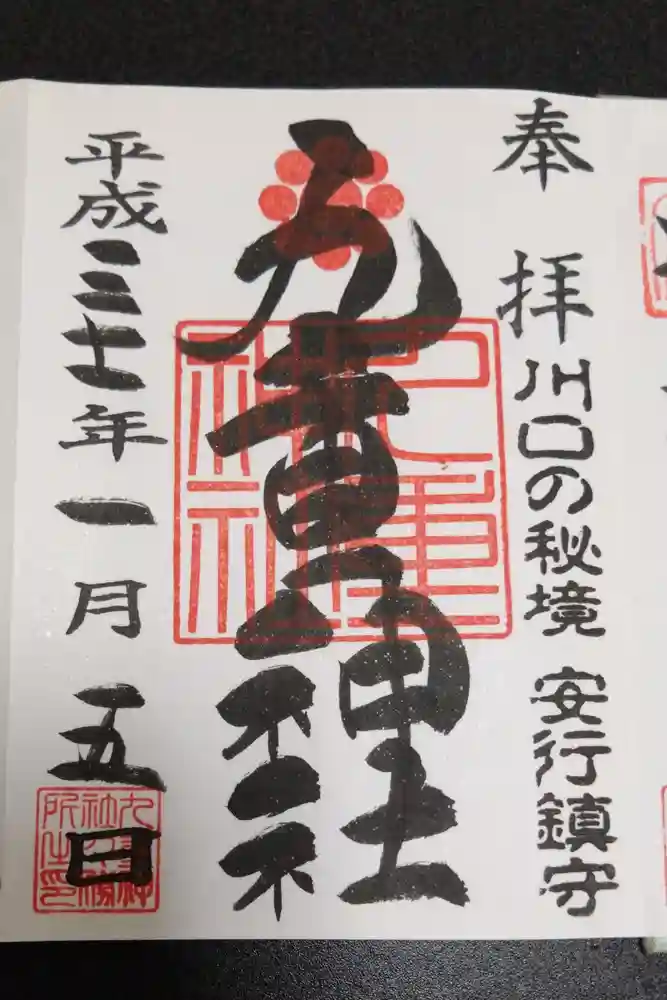 奉拝
川口の秘境 安行鎮守
九重神社
九重神社
平成三十一年一月五日